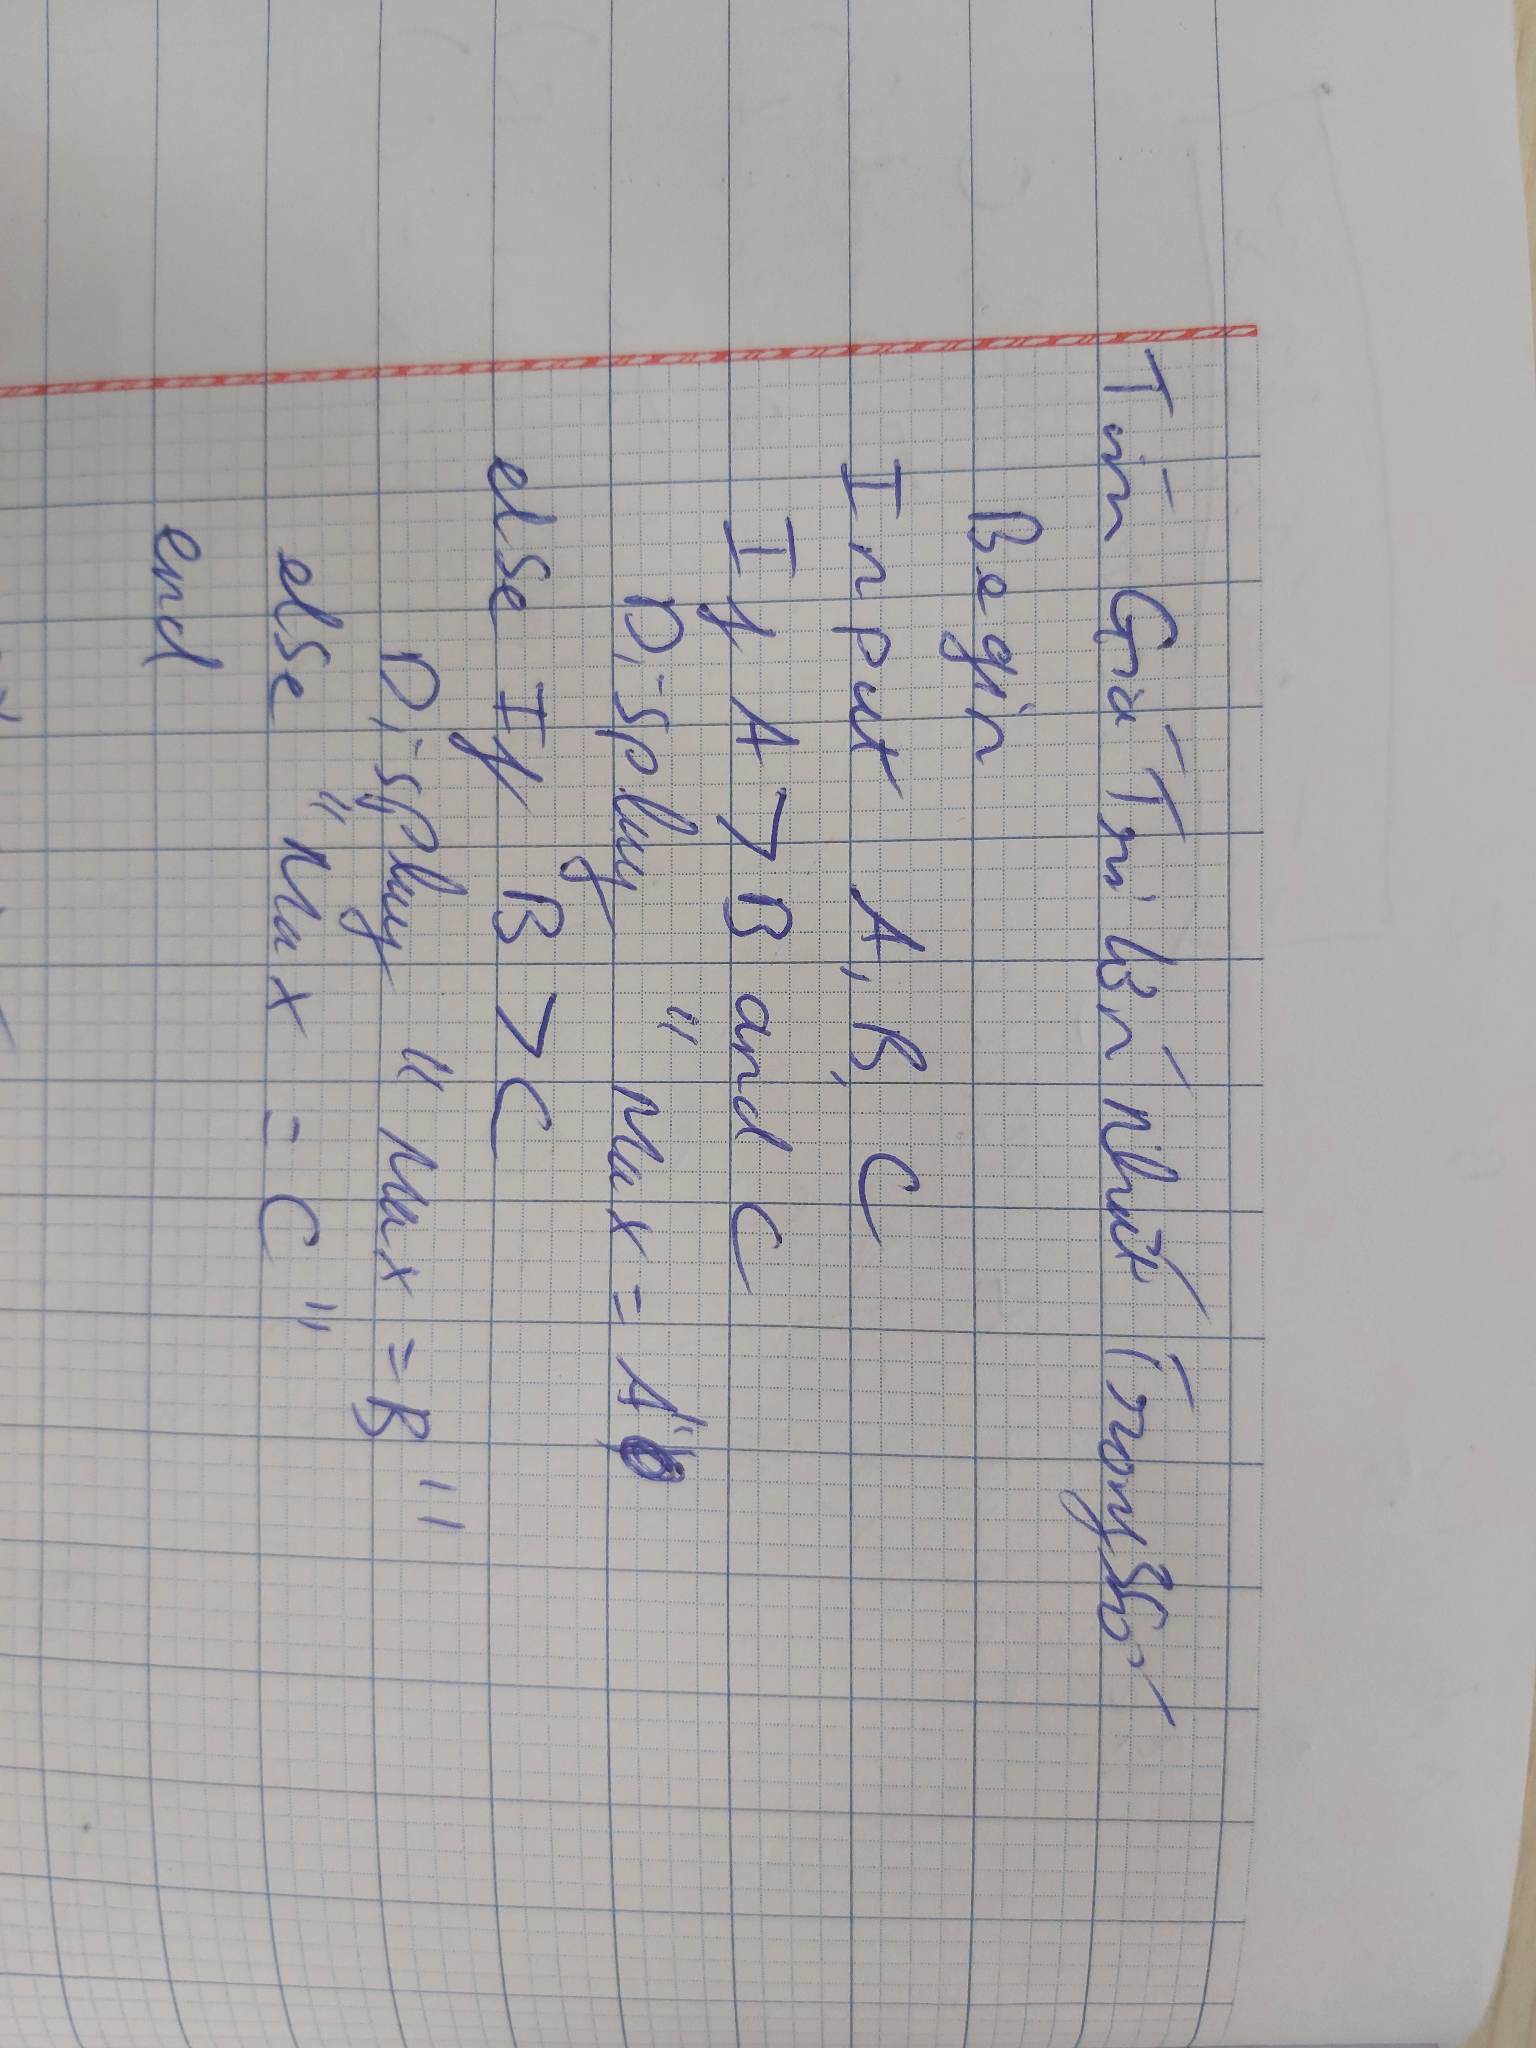 Tìm Giá Trị lớn nhất Trong 3 số
Begin
Input A, B, C
If A > B and C
Display "Max = A"
else If B > C
Display "Max = B"
else "Max = C"
end